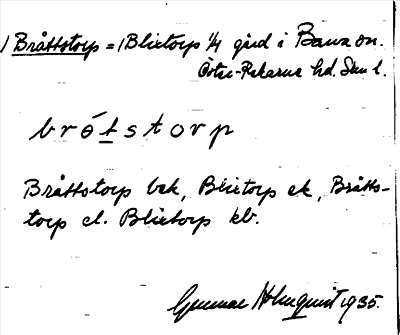 / Bråttstorp = / Blixtorp 1/4 gård i Barva sn.
Öster-Rekarne hd. Söm l.
bró̱tstorp
Bråttstorp bek, Blixtorp ek, Brátts-
torp el. Blixtorp kb.
Gunnar Holmquist 1935.